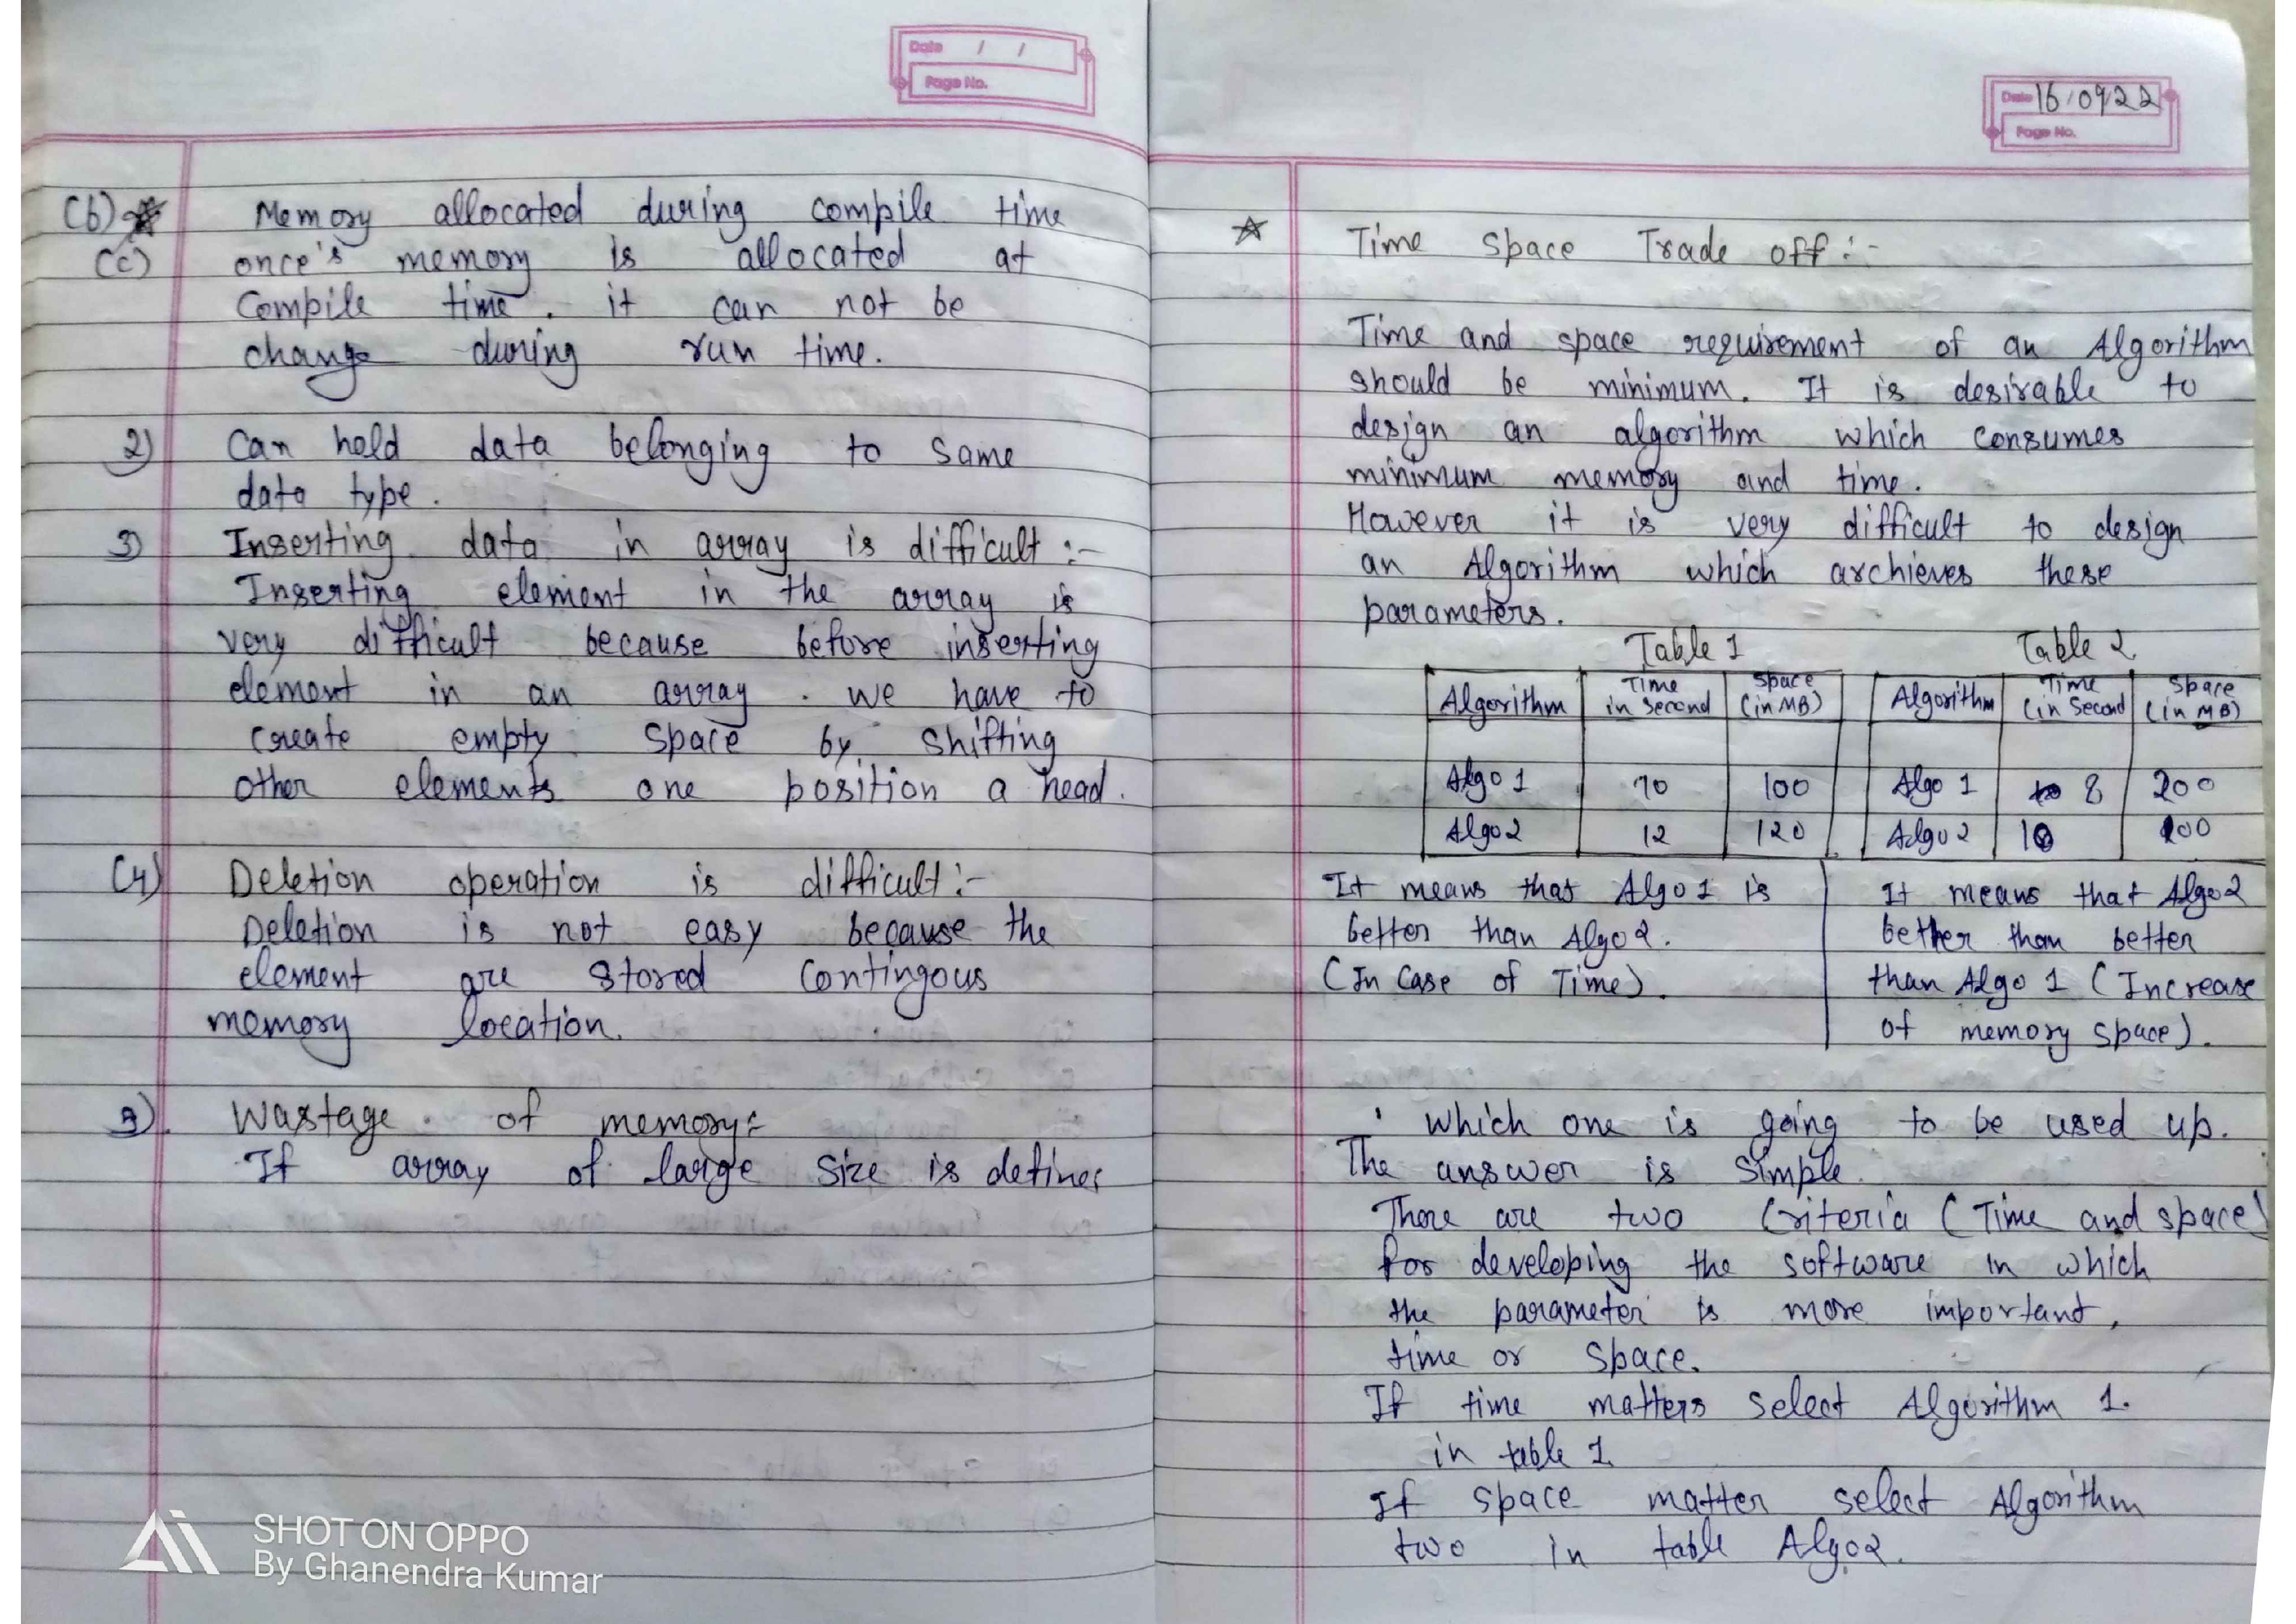 Date / /
Page No.
(b)
(c)
Memory allocated during compile time
once's memory is allocated at
Compile time. it can not be
change during run time.
2) Can hold data belonging to same
data type.
3) Inserting data in array is difficult :-
Inserting element in the array is
very difficult because before inserting
element in an array. we have to
create empty space by shifting
other elements one position a head.
(4) Deletion operation is difficult :-
Deletion is not easy because the
element are stored contingous
memory location.
Wastage of memory:
If array of large size is define
SHOT ON OPPO
By Ghanendra Kumar
Date 16/09/22
Page No.
☆ Time Space Trade off :-
Time and space requirement of an Algorithm
should be minimum. It is desirable to
design an algorithm which consumes
minimum memory and time.
However it is very difficult to design
an Algorithm which archieves these
parameters.
Table 1 Table 2
Algorithm Time in second Space (in MB) Algorithm Time (in second) Space (in MB)
Algo 1 10 100 Algo 1 8 200
Algo 2 12 120 Algo 2 10 100
It means that Algo 1 is
better than Algo 2.
(In Case of Time).
It means that Algo 2
better than better
than Algo 1 (Increase
of memory space).
which one is going to be used up.
The answer is simple.
There are two Criteria (Time and space)
for developing the software in which
the parameter is more important,
time or space.
If time matters select Algorithm 1.
in table 1.
If space matter select Algorithm
two in table Algo2.